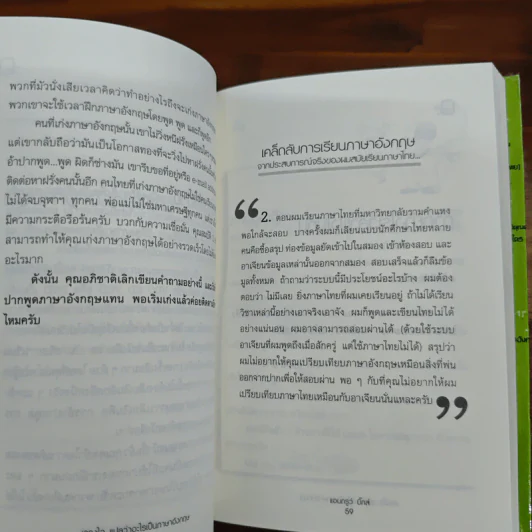 พวกที่มัวนั่งเสียเวลาคิดว่าทำอย่างไรถึงจะเก่งภาษา
พวกเขาจะใช้เวลาฝึกภาษาอังกฤษโดยพูด พูด
คนที่เก่งภาษาอังกฤษนั้น เขาไม่วิ่งหนีฝรั่ง
แต่เขากลับถือว่ามันเป็นโอกาสทองที่จะวิ่งไปหาฝรั่ง
อ้าปากพูด...พูด ผิดก็ช่างมัน เขารีบขอที่อยู่หรือ
ติดต่อหาฝรั่งคนนั้นอีก คนไทยที่เก่งภาษาอังกฤษ
ไม่ได้จบจุฬาฯ ทุกคน พ่อแม่ไม่ใช่มหาเศรษฐีทุกคน
มีความกระตือรือร้นครับ บวกกับความเชื่อมั่น คุณ
สามารถทำให้คุณเก่งภาษาอังกฤษได้อย่างรวดเร็วโดยไม่
อะไรมาก
ดังนั้น คุณอภิชาติเลิกเขียนคำถามอย่างนี้
ปากพูดภาษาอังกฤษแทน พอเริ่มเก่งแล้วค่อย
ไหมครับ
แปลว่าอะไรเป็นภาษาอังกฤษ
เคล็ดลับการเรียนภาษาอังกฤษ
จากประสบการณ์จริงของผมสมัยเรียนภาษาไทย...
“ 2. ตอนผมเรียนภาษาไทยที่มหาวิทยาลัยรามคำแหง
พอใกล้จะสอบ บางครั้งผมก็เลียนแบบนักศึกษาไทยหลาย
คนคือซื้อสรุป ท่องข้อมูลยัดเข้าไปในสมอง เข้าห้องสอบ และ
อาเจียนข้อมูลเหล่านั้นออกจากสมอง สอบเสร็จแล้วก็ลืมข้อ
มูลทั้งหมด ถ้าถามว่าระบบนี้มีประโยชน์อะไรบ้าง ผมต้อง
ตอบว่า ไม่มีเลย ยิ่งภาษาไทยที่ผมเคยเรียนอยู่ ถ้าไม่ได้เรียน
วิชาเหล่านี้อย่างเอาจริงเอาจัง ผมก็พูดและเขียนไทยไม่ได้
อย่างแน่นอน ผมอาจสามารถสอบผ่านได้ (ด้วยใช้ระบบ
อาเจียนที่ผมพูดถึงเมื่อสักครู่ แต่ใช้ภาษาไทยไม่ได้) สรุปว่า
ผมไม่อยากให้คุณเปรียบเทียบภาษาอังกฤษเหมือนสิ่งที่พ่น
ออกจากปากเพื่อให้สอบผ่าน พอ ๆ กับที่คุณไม่อยากให้ผม
เปรียบเทียบภาษาไทยเหมือนกับอาเจียนนั่นแหละครับ ”
แอนดรูว์ บิ๊กส์
59